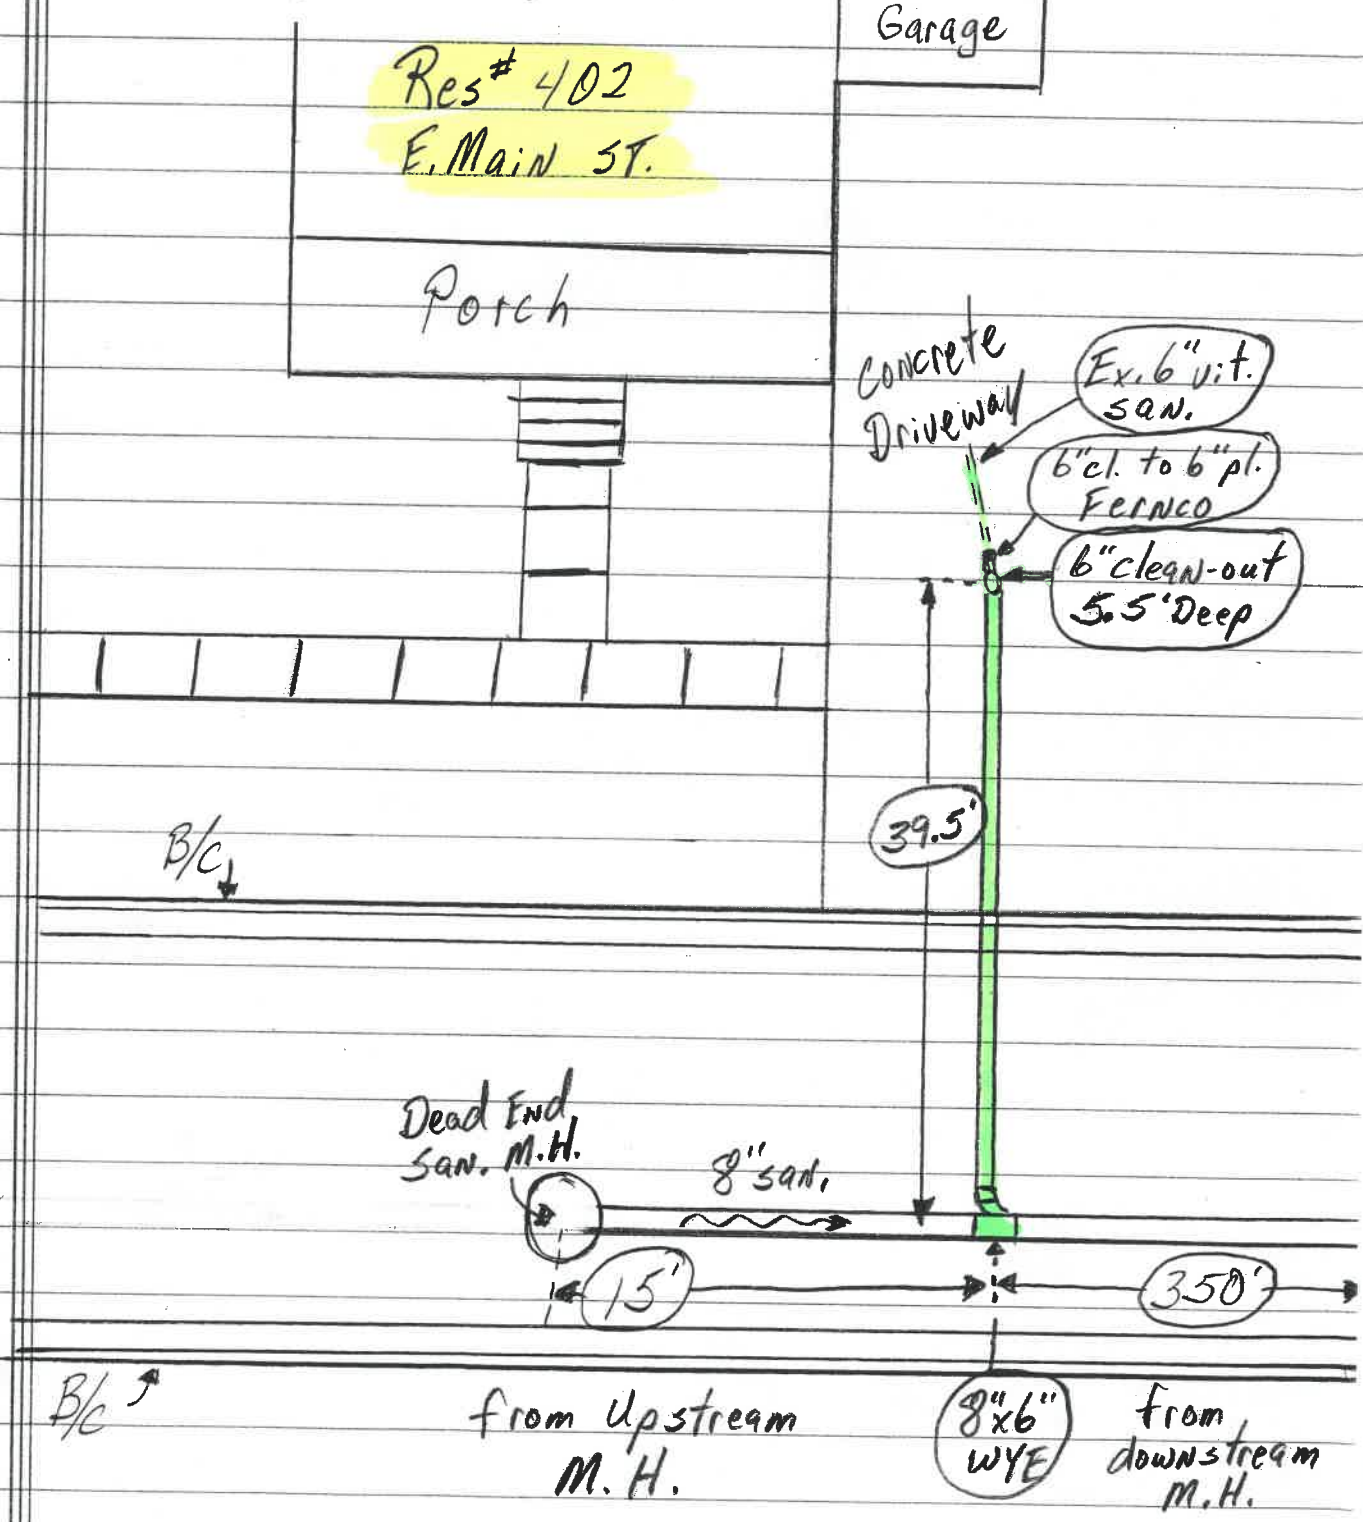 Garage
Res# 402
E. Main ST.
Porch
Concrete
Driveway
Ex. 6" vit.
san.
6" cl. to 6" pl.
Fernco
6" clean-out
5.5' Deep
39.5'
B/C
Dead End
san. M.H.
8" san.
15'
350'
B/C
from Upstream
M.H.
8"x6"
WYE
from
downstream
M.H.